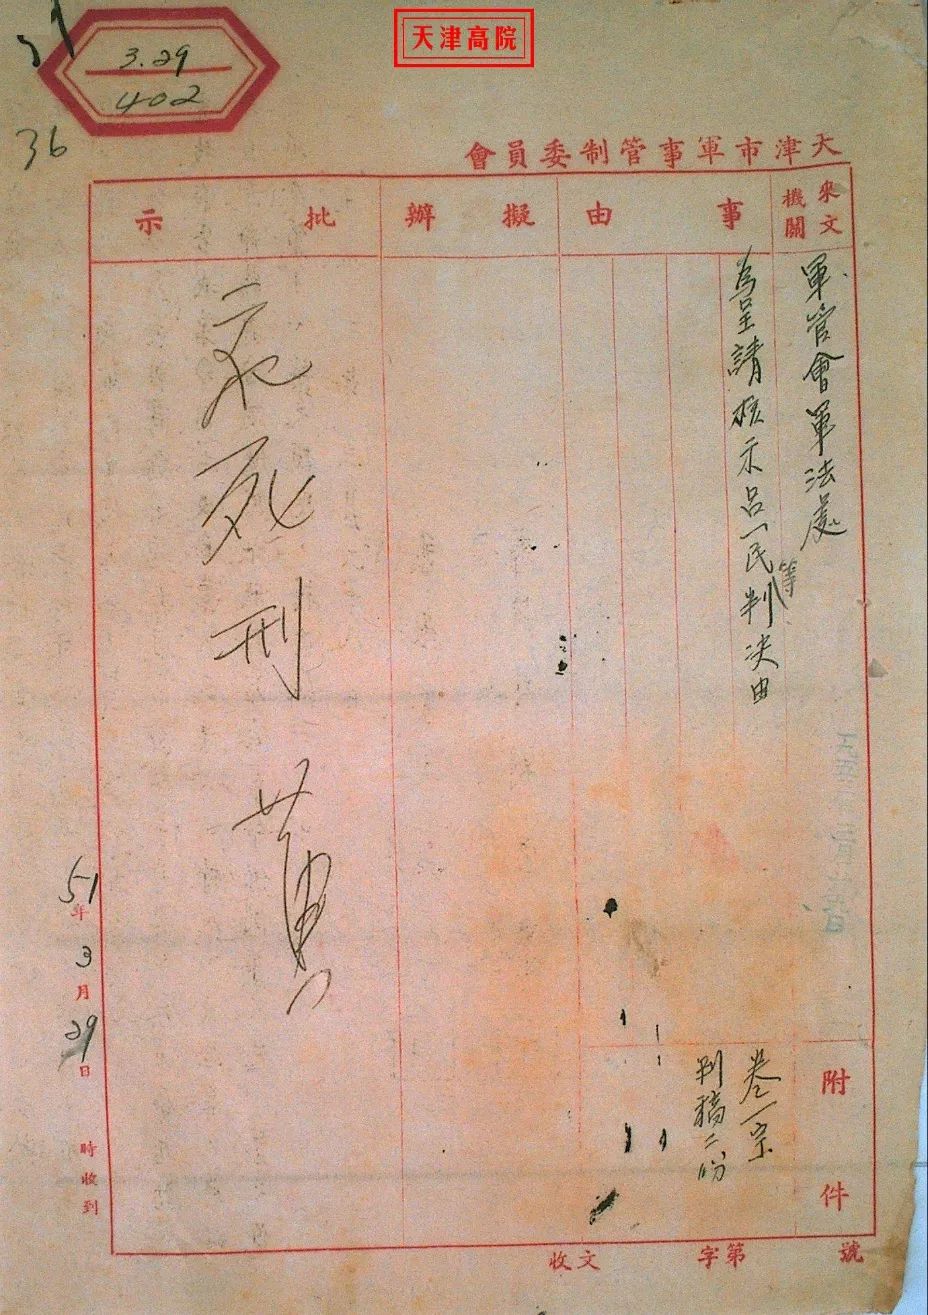 天津高院
3.29
402
36
天津市軍事管制委員會
來文機關
事由
擬辦
批示
軍管會軍法處
為呈請核示呂一民等判決由
死刑
黃
51年3月29日 時收到
附件
卷一宗
判稿二份
收文 字第 號